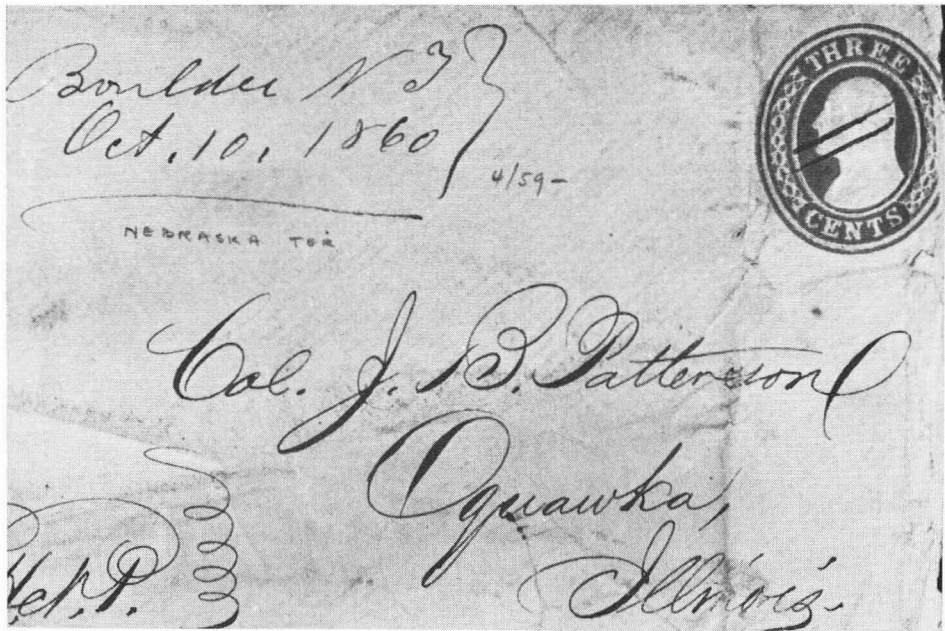 Boulder N T
Oct. 10, 1860
4/59-
NEBRASKA TER
THREE
CENTS
Col. J. B. Patterson
Oquawka,
Illinois.